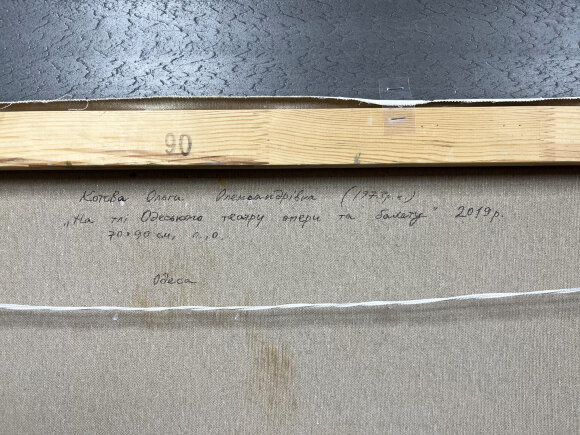 90
Котова Ольга Олександрівна (1975р.н.)
„На тлі Одеського театру опери та балету" 2019р.
70×90 см, п.,о.
Одеса